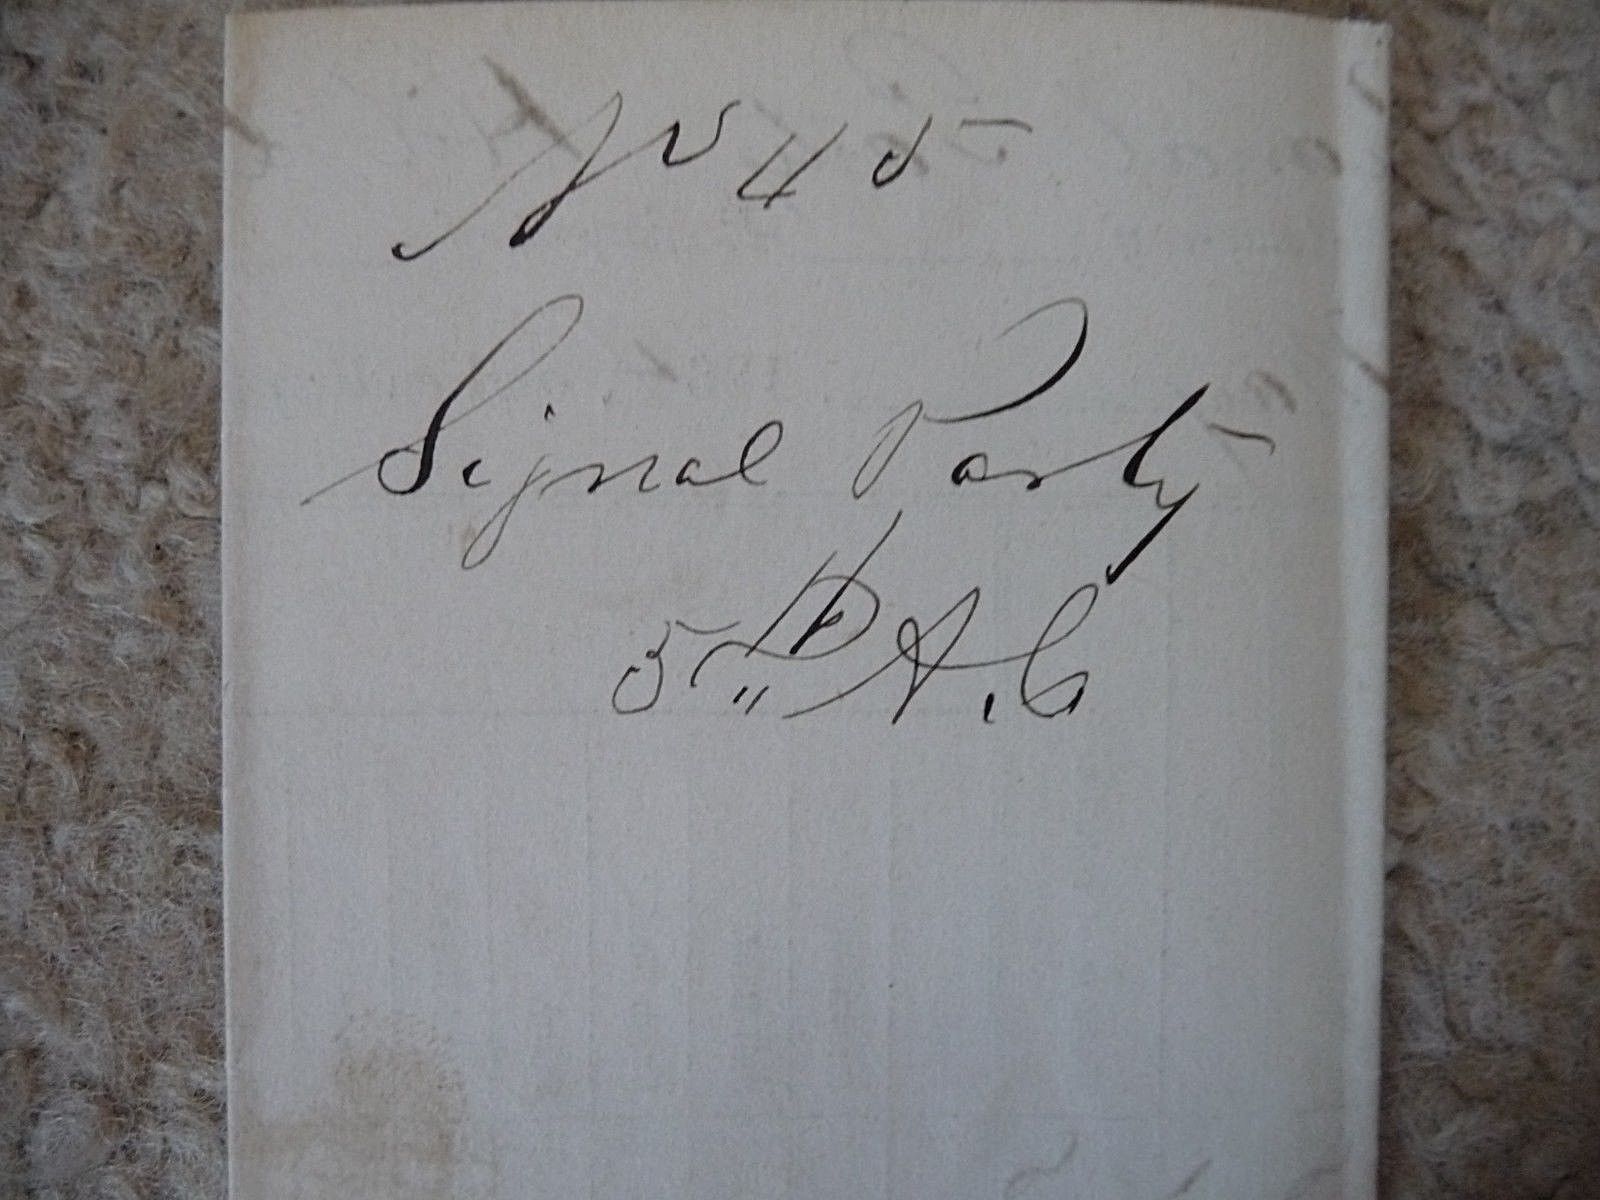 No 45
Signal Party
5th A.C